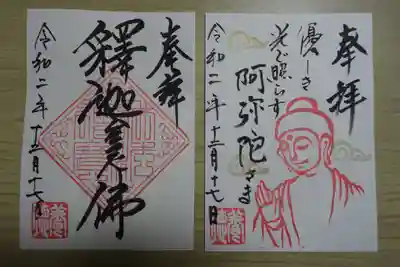 奉拝
釋迦三尊佛
令和二年十二月十七日
奉拝
優しき
光で照らす
阿弥陀さま
令和二年十二月十七日